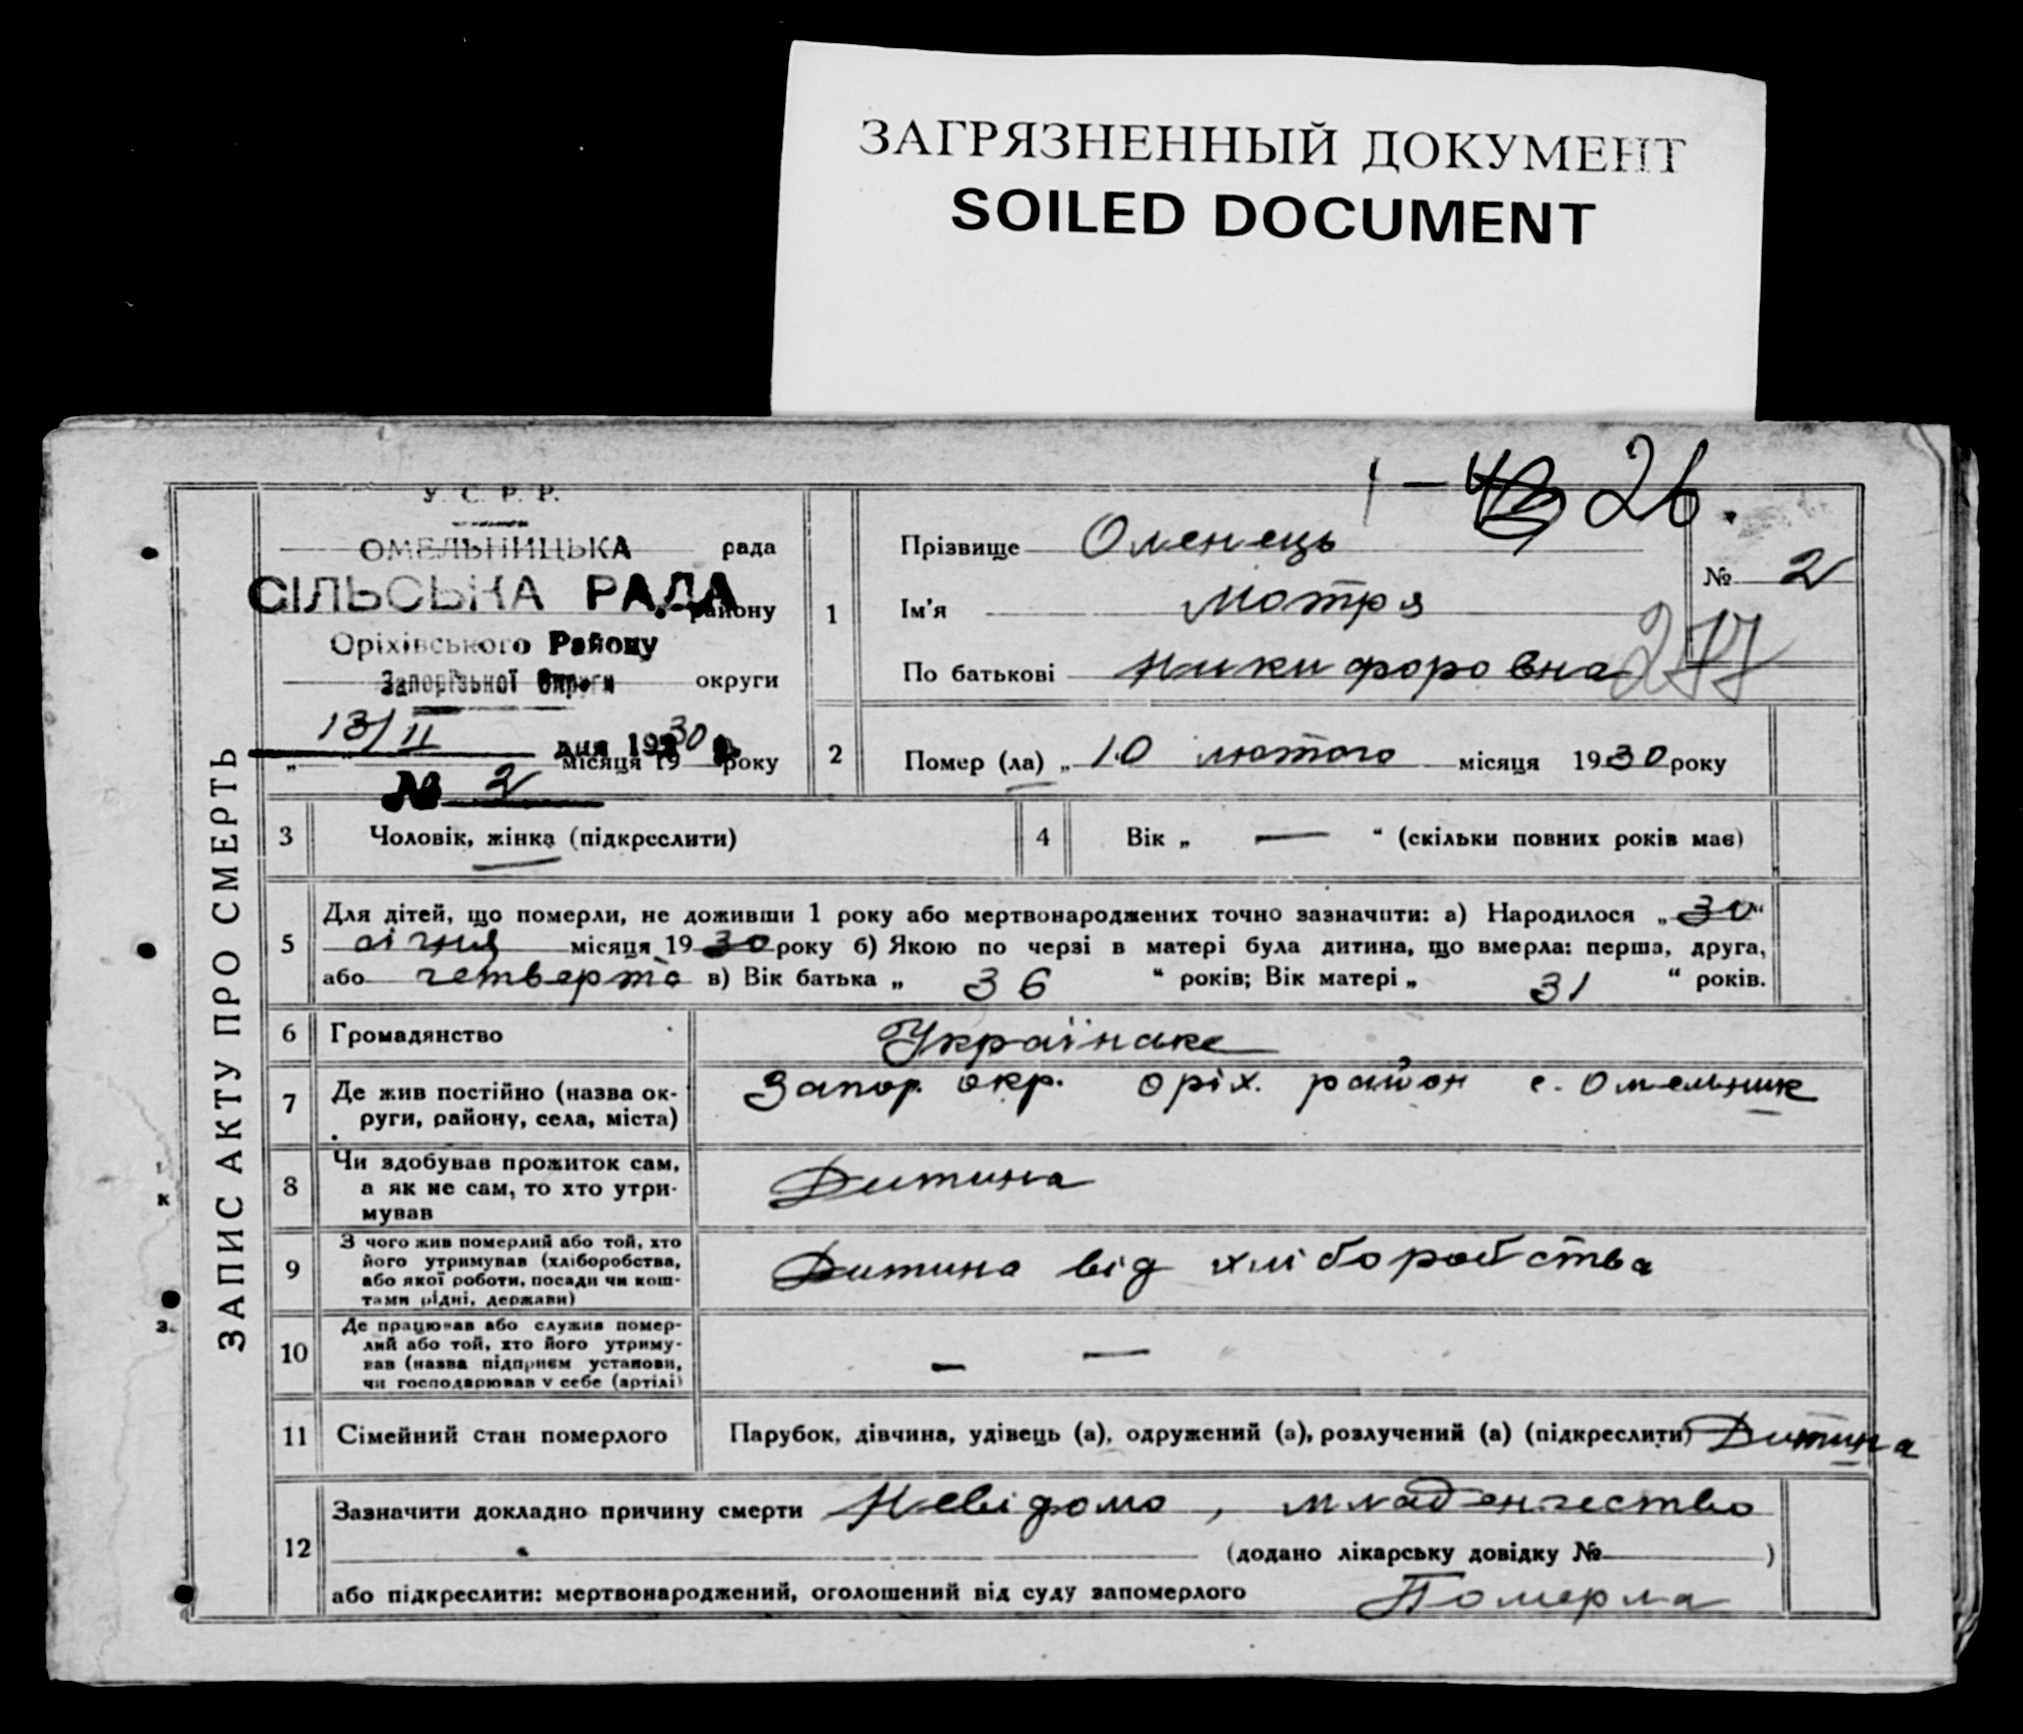 ЗАГРЯЗНЕННЫЙ ДОКУМЕНТ
SOILED DOCUMENT
1 – 26.
ЗАПИС АКТУ ПРО СМЕРТЬ
У. С. Р. Р.
ОМЕЛЬНИЦЬКА рада
СІЛЬСЬКА РАДА
району
Оріхівського Району
Запорізької Округи округи
13/II дня 1930 р.
„ місяця 19 року
№ 2
1
Прізвище Оленець
Ім'я Мотря
По батькові Никифоровна
№ 2
277
2
Помер (ла) „ 10 лютого місяця 1930 року
3 Чоловік, жінка (підкреслити)
4 Вік „ — “ (скільки повних років має)
5
Для дітей, що померли, не доживши 1 року або мертвонароджених точно зазначити: а) Народилося „ 30 “
січня місяця 1930 року б) Якою по черзі в матері була дитина, що вмерла: перша, друга,
або четверта в) Вік батька „ 36 “ років; Вік матері „ 31 “ років.
6 Громадянство Українське
7 Де жив постійно (назва ок-
руги, району, села, міста)
Запор. окр. Оріх. район с. Омельник
8 Чи здобував прожиток сам,
а як не сам, то хто утри-
мував
Дитина
9 З чого жив померлий або той, хто
його утримував (хліборобства,
або якої роботи, посади чи кош-
тами рідні, держави)
Дитина від хліборобства
10 Де працював або служив помер-
лий або той, хто його утриму-
вав (назва підприєм установи,
чи господарював у себе (артілі)
– —
11 Сімейний стан померлого
Парубок, дівчина, удівець (а), одружений (а), розлучений (а) (підкреслити) Дитина
12
Зазначити докладно причину смерти Невідомо, младенчество
(додано лікарську довідку № )
або підкреслити: мертвонароджений, оголошений від суду запомерлого Померла